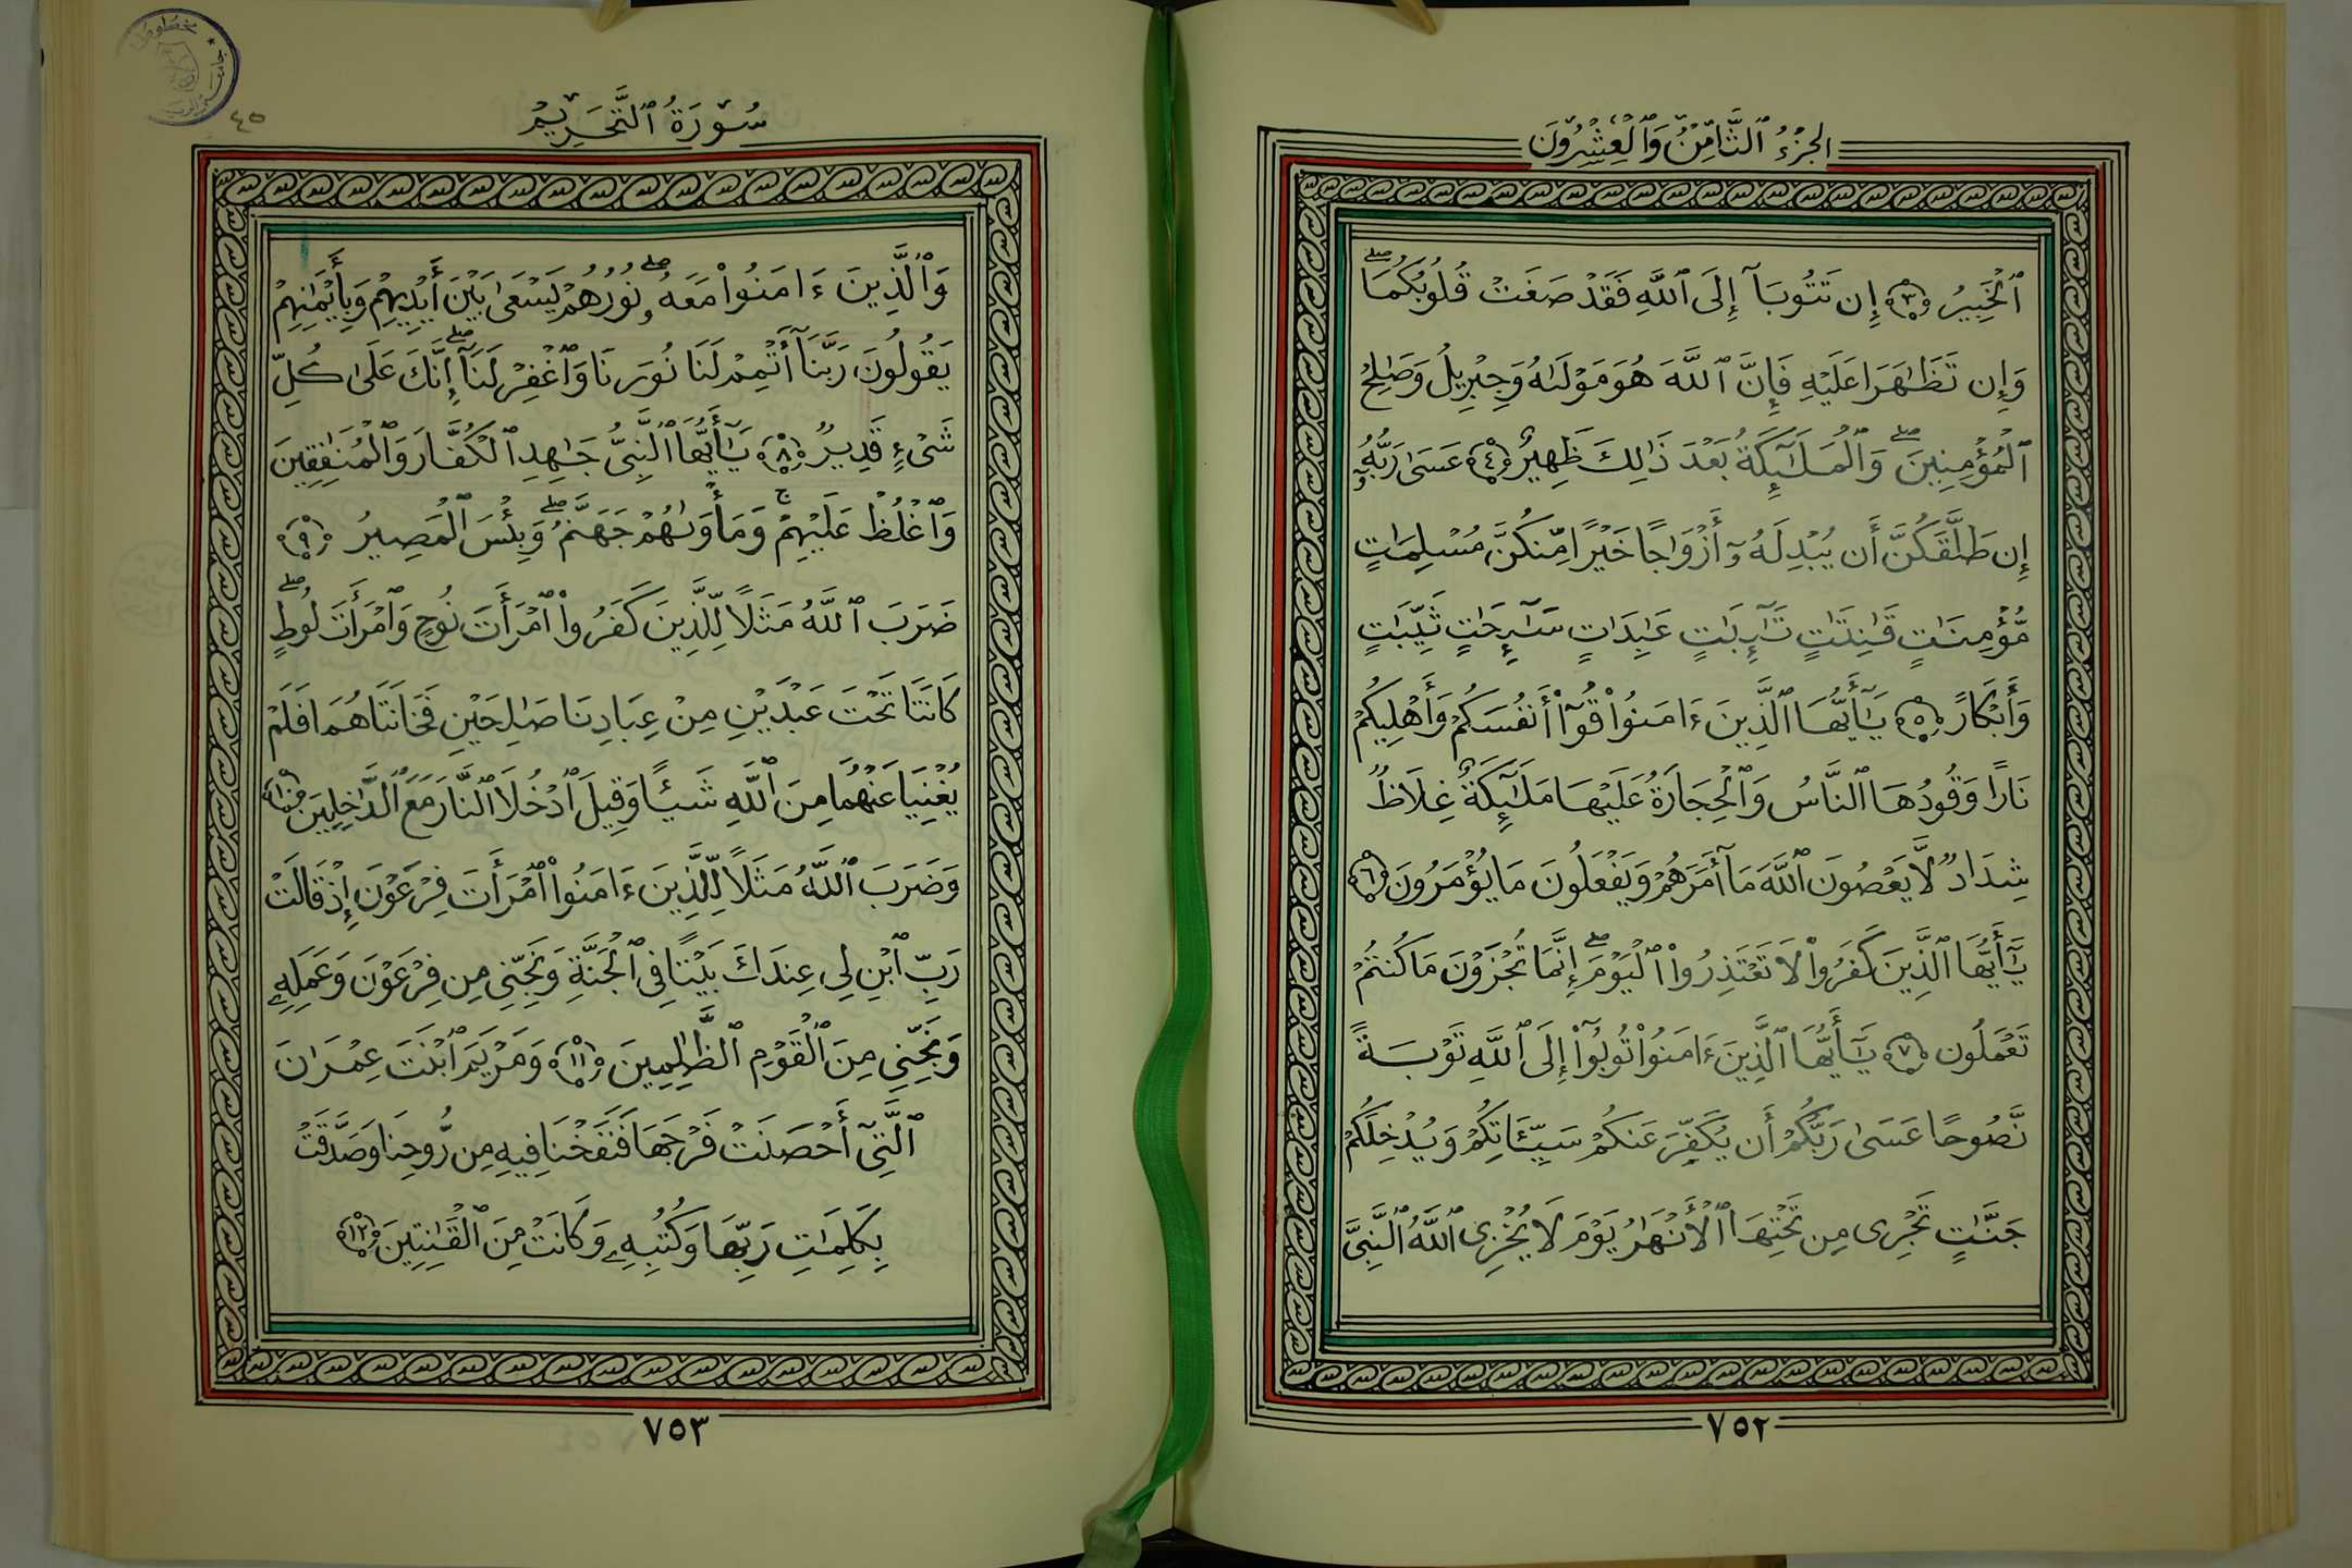 الجُزْءُ ٱلثَّامِنُ وَٱلْعِشْرُونَ
ٱلْخَبِيرُ ﴿٣﴾ إِن تَتُوبَآ إِلَى ٱللَّهِ فَقَدْ صَغَتْ قُلُوبُكُمَاۖ
وَإِن تَظَٰهَرَا عَلَيْهِ فَإِنَّ ٱللَّهَ هُوَ مَوْلَىٰهُ وَجِبْرِيلُ وَصَٰلِحُ
ٱلْمُؤْمِنِينَۖ وَٱلْمَلَٰٓئِكَةُ بَعْدَ ذَٰلِكَ ظَهِيرٌ ﴿٤﴾ عَسَىٰ رَبُّهُۥٓ
إِن طَلَّقَكُنَّ أَن يُبْدِلَهُۥٓ أَزْوَٰجًا خَيْرًا مِّنكُنَّ مُسْلِمَٰتٍ
مُّؤْمِنَٰتٍ قَٰنِتَٰتٍ تَٰٓئِبَٰتٍ عَٰبِدَٰتٍ سَٰٓئِحَٰتٍ ثَيِّبَٰتٍ
وَأَبْكَارًا ﴿٥﴾ يَٰٓأَيُّهَا ٱلَّذِينَ ءَامَنُوا۟ قُوٓا۟ أَنفُسَكُمْ وَأَهْلِيكُمْ
نَارًا وَقُودُهَا ٱلنَّاسُ وَٱلْحِجَارَةُ عَلَيْهَا مَلَٰٓئِكَةٌ غِلَاظٌ
شِدَادٌ لَّا يَعْصُونَ ٱللَّهَ مَآ أَمَرَهُمْ وَيَفْعَلُونَ مَا يُؤْمَرُونَ ﴿٦﴾
يَٰٓأَيُّهَا ٱلَّذِينَ كَفَرُوا۟ لَا تَعْتَذِرُوا۟ ٱلْيَوْمَۖ إِنَّمَا تُجْزَوْنَ مَا كُنتُمْ
تَعْمَلُونَ ﴿٧﴾ يَٰٓأَيُّهَا ٱلَّذِينَ ءَامَنُوا۟ تُوبُوٓا۟ إِلَى ٱللَّهِ تَوْبَةً
نَّصُوحًا عَسَىٰ رَبُّكُمْ أَن يُكَفِّرَ عَنكُمْ سَيِّـَٔاتِكُمْ وَيُدْخِلَكُمْ
جَنَّٰتٍ تَجْرِى مِن تَحْتِهَا ٱلْأَنْهَٰرُ يَوْمَ لَا يُخْزِى ٱللَّهُ ٱلنَّبِىَّ
٧٥٢
سُورَةُ ٱلتَّحْرِيمِ
٤٥
وَٱلَّذِينَ ءَامَنُوا۟ مَعَهُۥۖ نُورُهُمْ يَسْعَىٰ بَيْنَ أَيْدِيهِمْ وَبِأَيْمَٰنِهِمْ
يَقُولُونَ رَبَّنَآ أَتْمِمْ لَنَا نُورَنَا وَٱغْفِرْ لَنَآۖ إِنَّكَ عَلَىٰ كُلِّ
شَىْءٍ قَدِيرٌ ﴿٨﴾ يَٰٓأَيُّهَا ٱلنَّبِىُّ جَٰهِدِ ٱلْكُفَّارَ وَٱلْمُنَٰفِقِينَ
وَٱغْلُظْ عَلَيْهِمْۚ وَمَأْوَىٰهُمْ جَهَنَّمُۖ وَبِئْسَ ٱلْمَصِيرُ ﴿٩﴾
ضَرَبَ ٱللَّهُ مَثَلًا لِّلَّذِينَ كَفَرُوا۟ ٱمْرَأَتَ نُوحٍ وَٱمْرَأَتَ لُوطٍۖ
كَانَتَا تَحْتَ عَبْدَيْنِ مِنْ عِبَادِنَا صَٰلِحَيْنِ فَخَانَتَاهُمَا فَلَمْ
يُغْنِيَا عَنْهُمَا مِنَ ٱللَّهِ شَيْـًٔا وَقِيلَ ٱدْخُلَا ٱلنَّارَ مَعَ ٱلدَّٰخِلِينَ ﴿١٠﴾
وَضَرَبَ ٱللَّهُ مَثَلًا لِّلَّذِينَ ءَامَنُوا۟ ٱمْرَأَتَ فِرْعَوْنَ إِذْ قَالَتْ
رَبِّ ٱبْنِ لِى عِندَكَ بَيْتًا فِى ٱلْجَنَّةِ وَنَجِّنِى مِن فِرْعَوْنَ وَعَمَلِهِۦ
وَنَجِّنِى مِنَ ٱلْقَوْمِ ٱلظَّٰلِمِينَ ﴿١١﴾ وَمَرْيَمَ ٱبْنَتَ عِمْرَٰنَ
ٱلَّتِىٓ أَحْصَنَتْ فَرْجَهَا فَنَفَخْنَا فِيهِ مِن رُّوحِنَا وَصَدَّقَتْ
بِكَلِمَٰتِ رَبِّهَا وَكُتُبِهِۦ وَكَانَتْ مِنَ ٱلْقَٰنِتِينَ ﴿١٢﴾
٧٥٣